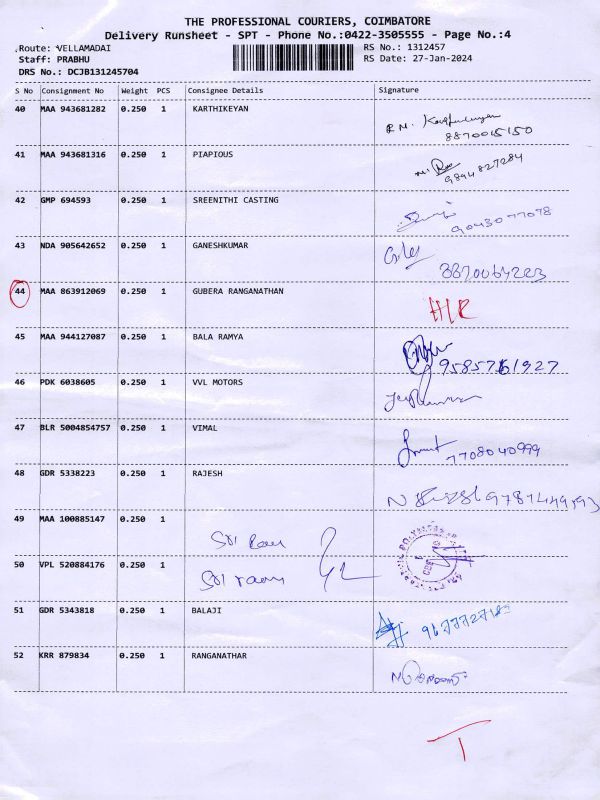 THE PROFESSIONAL COURIERS, COIMBATORE
Delivery Runsheet - SPT - Phone No.:0422-3505555 - Page No.:4
Route: VELLAMADAI RS No.: 1312457
Staff: PRABHU RS Date: 27-Jan-2024
DRS No.: DCJB131245704
S No Consignment No Weight PCS Consignee Details Signature
40 MAA 943681282 0.250 1 KARTHIKEYAN
8870015150
41 MAA 943681316 0.250 1 PIAPIOUS
9894827284
42 GMP 694593 0.250 1 SREENITHI CASTING
9043077078
43 NDA 905642652 0.250 1 GANESHKUMAR
44 MAA 863912069 0.250 1 GUBERA RANGANATHAN
45 MAA 944127087 0.250 1 BALA RAMYA
46 PDK 6038605 0.250 1 VVL MOTORS
47 BLR 5004854757 0.250 1 VIMAL
7708040999
48 GDR 5338223 0.250 1 RAJESH
49 MAA 100885147 0.250 1
Sri Ram
50 VPL 520884176 0.250 1
Sri ram
51 GDR 5343818 0.250 1 BALAJI
52 KRR 879834 0.250 1 RANGANATHAR